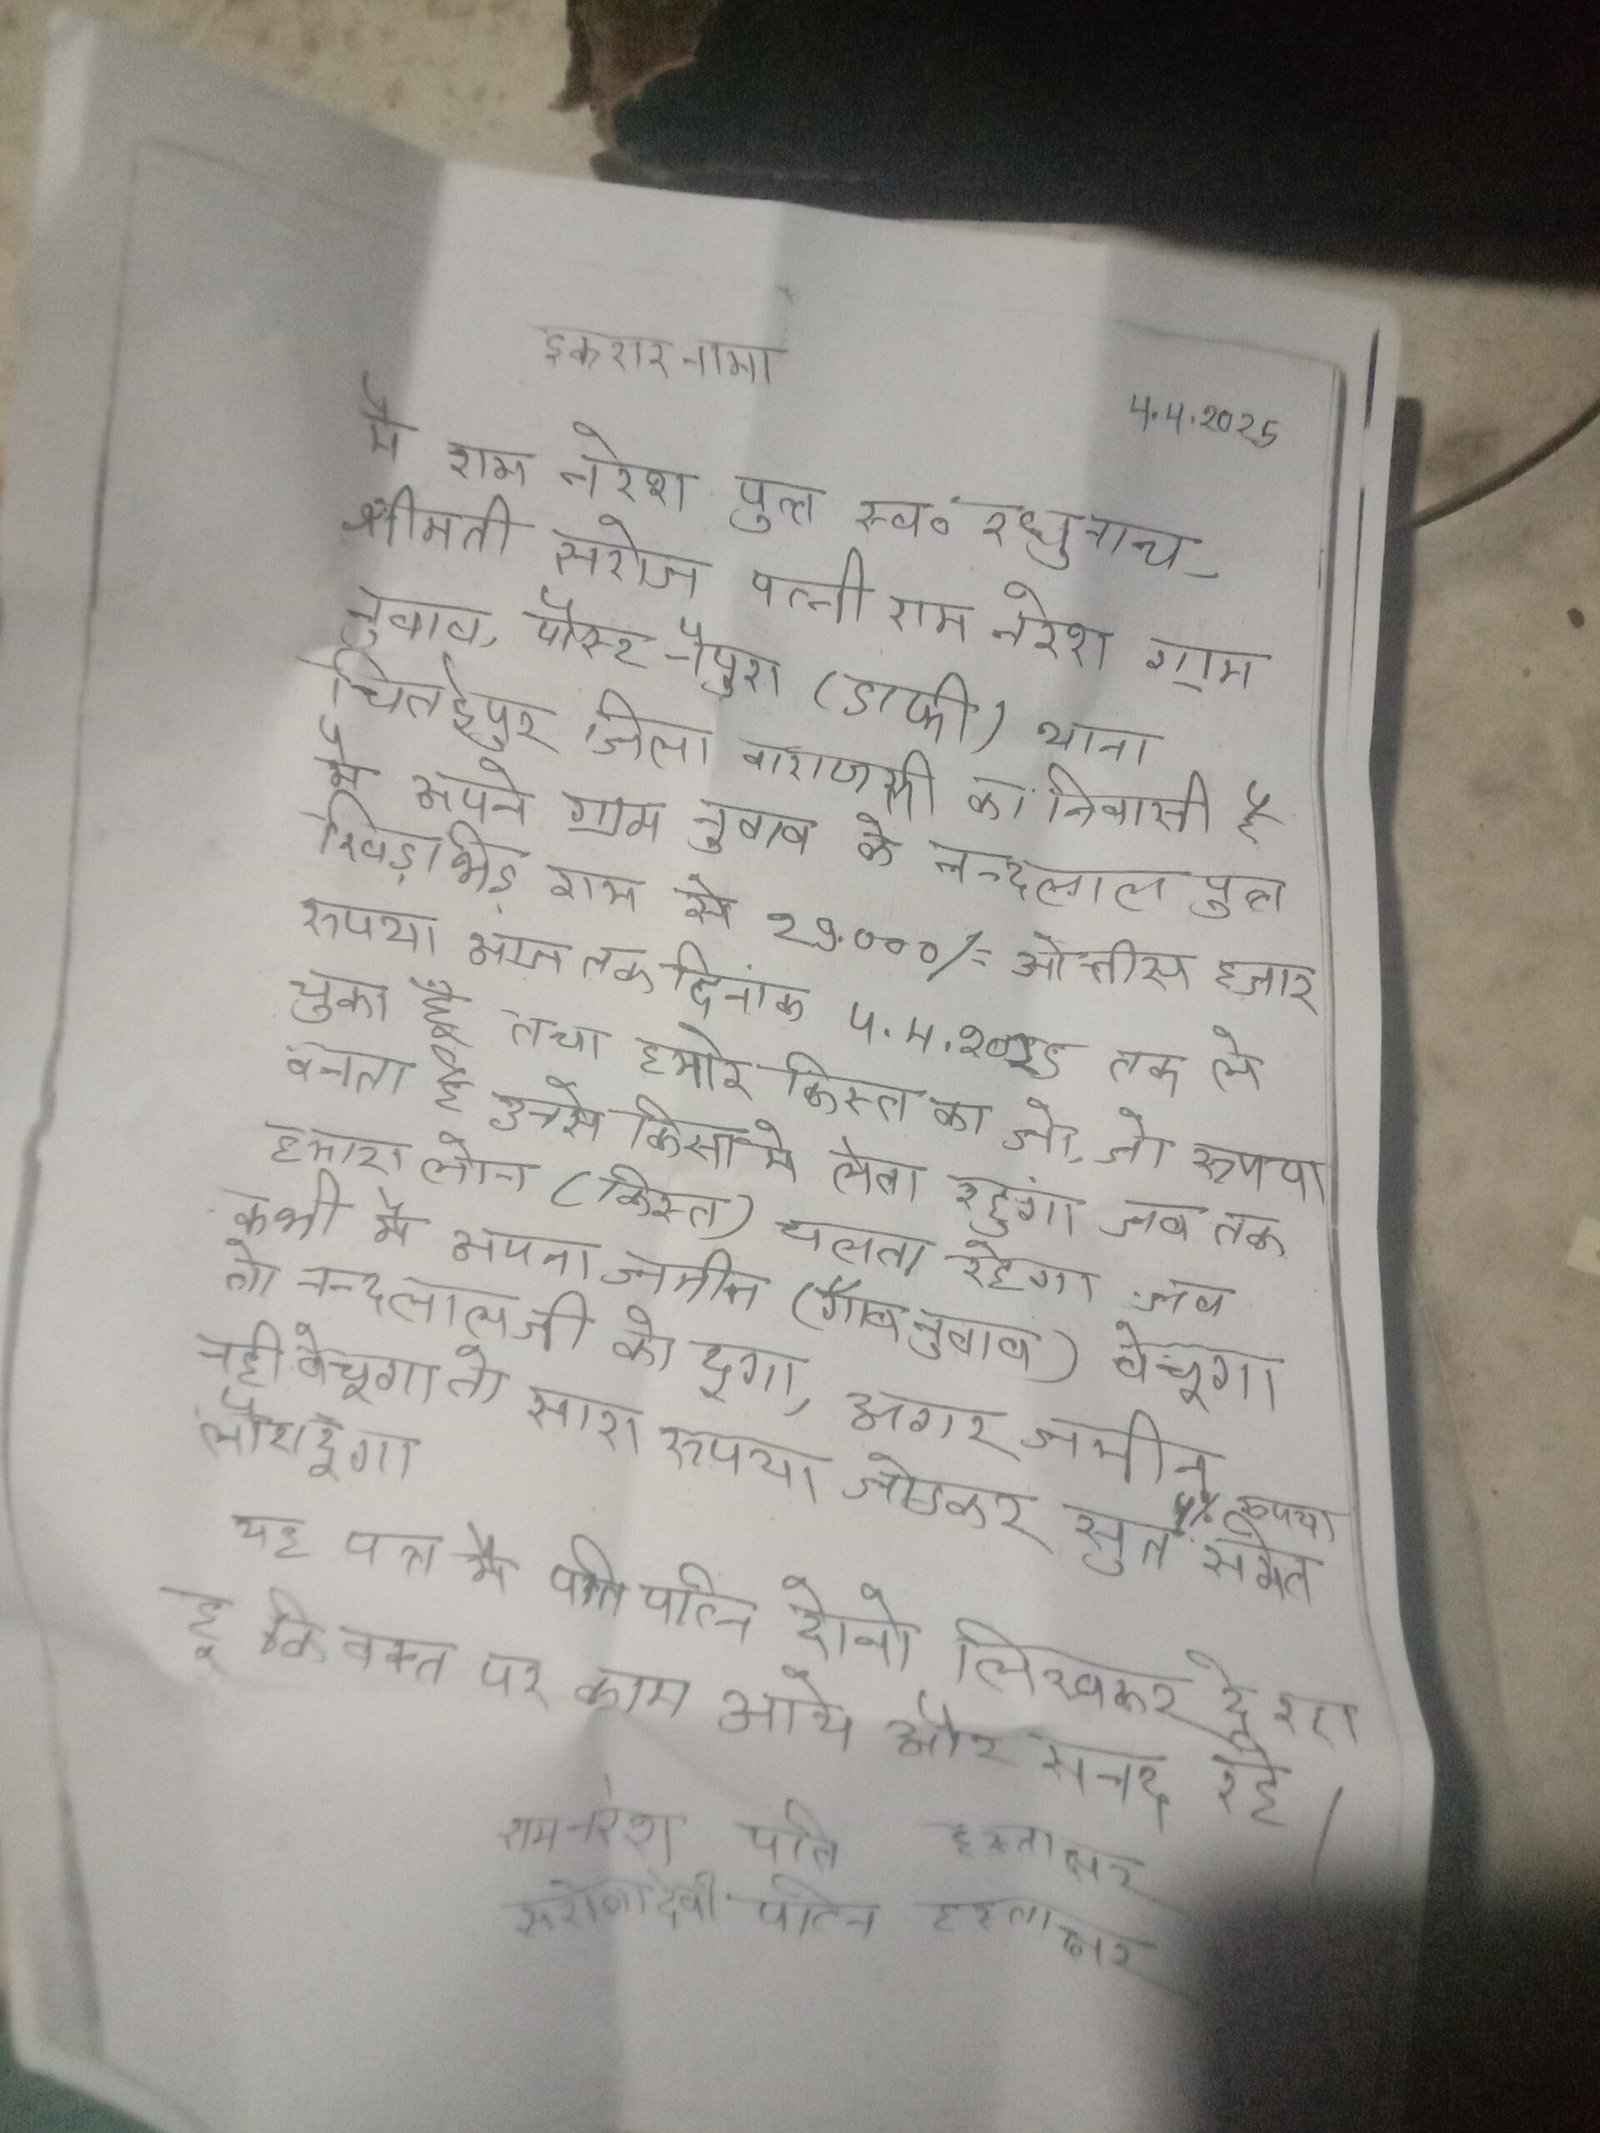 इकरारनामा
4.4.2025
मै राम नरेश पुत्र स्व० रघुनाथ
श्रीमती सरोज पत्नी राम नरेश ग्राम
नुवाव, पोस्ट नैपुरा (डाफी) थाना
चितईपुर जिला वाराणसी का निवासी हूँ
मै अपने ग्राम नुवाव के नन्दलाल पुत्र
खिड़ाभिड़ राम से 29.000/= ओन्तीस हजार
रुपया आज तक दिनांक 4.4.2025 तक ले
चुका हूँ तथा हमारे किस्त का जो, जो रुपया
बनता है उनसे किसा मे लेता रहुंगा जब तक
हमारा लोन (किस्त) चलता रहेगा जब
कभी मै अपना जमीन (गाँव नुवाव) बेचूगा
तो नन्दलाल जी को दूगा, अगर जमीन
नही बेचूगा तो सारा रुपया जोड़कर सुत 4% रुपया समेत
लौटा दूँगा
यह पत्र मै पति पत्नि दोनो लिखकर दे रहा
हू कि वक्त पर काम आये और सनद रहे।
रामनरेश पति हस्ताक्षर
सरोजा देवी पत्नि हस्ताक्षर